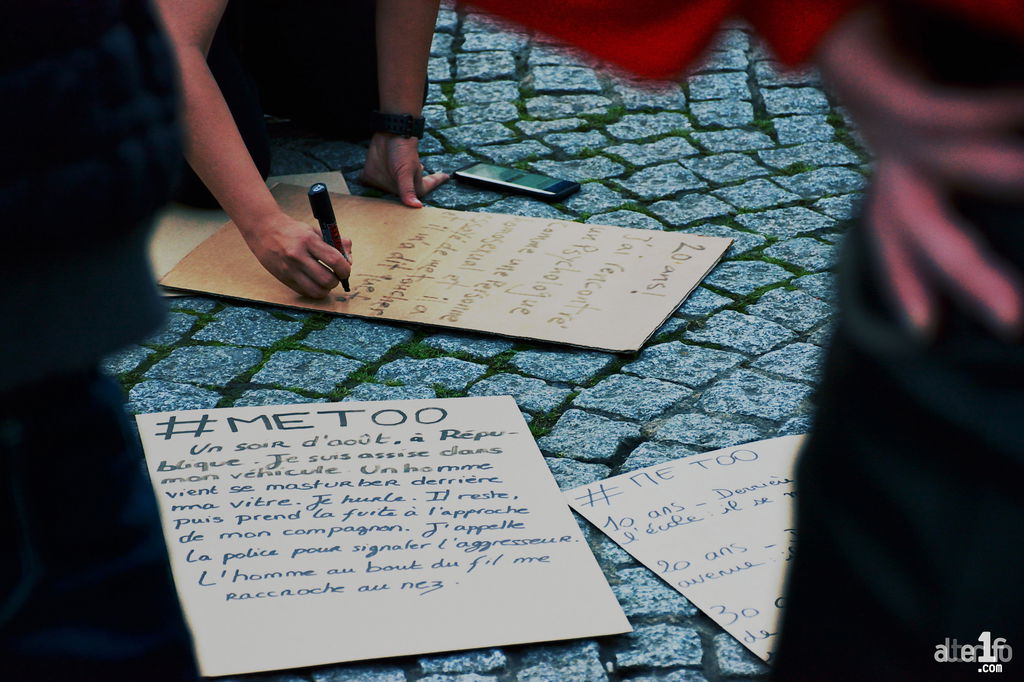 20ans!
J'ai rencontré
un Psychologue
comme une Personne
#METOO
Un soir d'août, à Répu-
blique. Je suis assise dans
mon véhicule. Un homme
vient se masturber derrière
ma vitre. Je hurle. Il reste,
puis prend la fuite à l'approche
de mon compagnon. J'appelle
la police pour signaler l'aggresseur.
L'homme au bout du fil me
raccroche au nez.
#METOO
10 ans - Derrière
l'école : il se
20 ans -
avenue :
30
de
alter1fo
.com